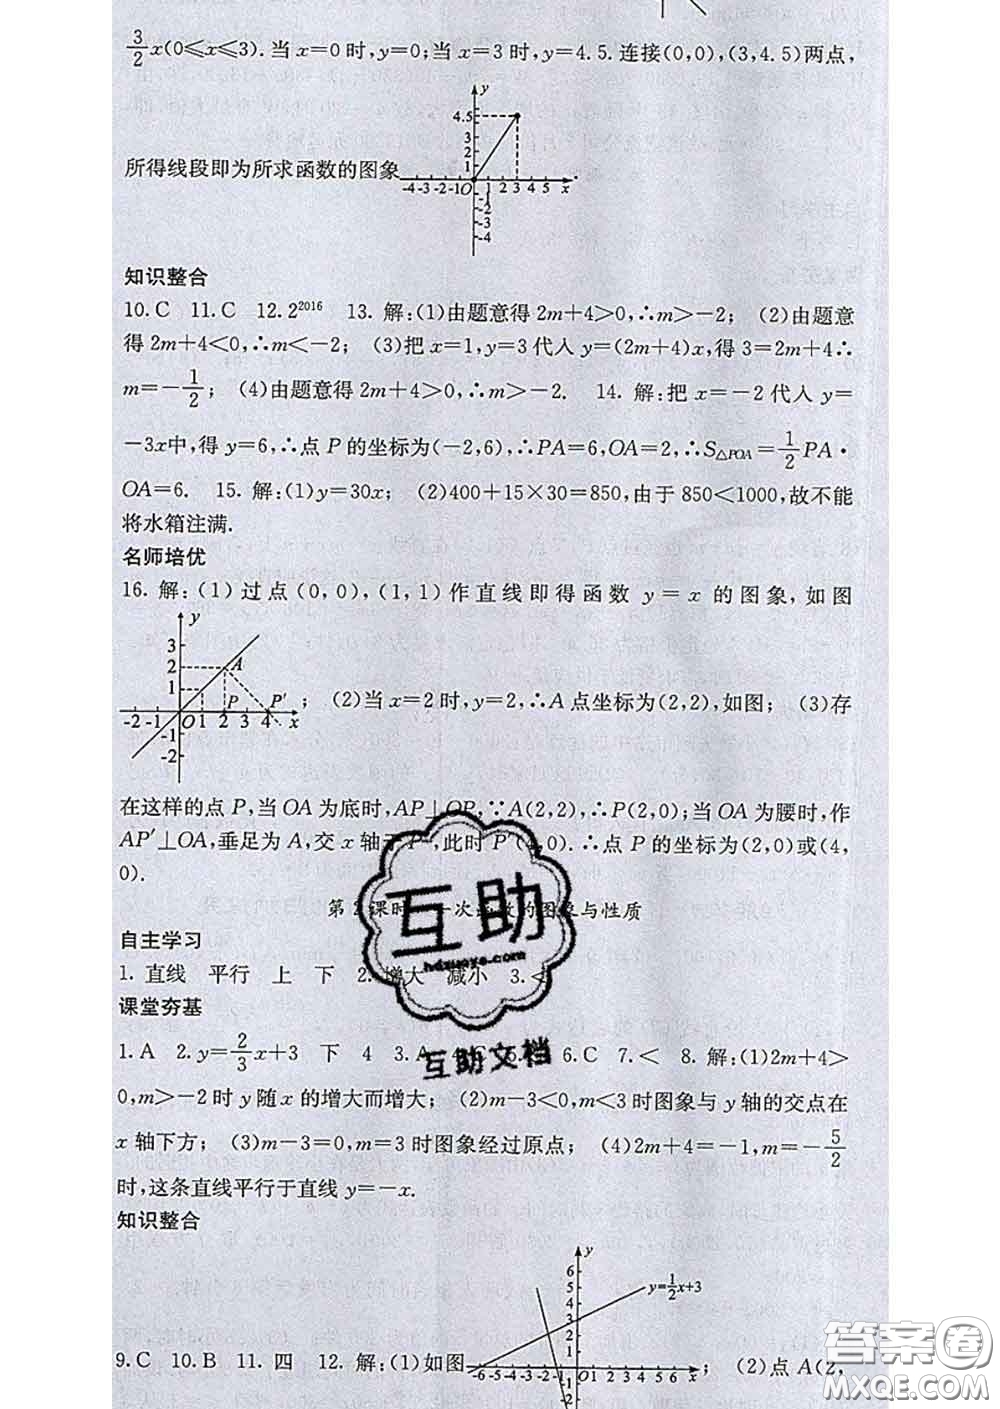 3/2x(0≤x≤3).当x=0时,y=0;当x=3时,y=4.5.连接(0,0),(3,4.5)两点,
y
4.5
3
2
1
-4-3-2-1O 1 2 3 4 5 x
-1
-2
-3
-4
所得线段即为所求函数的图象.
知识整合
10.C 11.C 12.2^2016 13.解:(1)由题意得2m+4>0,∴m>-2; (2)由题意
得2m+4<0,∴m<-2; (3)把x=1,y=3代入y=(2m+4)x,得3=2m+4∴
m=-1/2; (4)由题意得2m+4>0,∴m>-2. 14.解:把x=-2代入y=
-3x中,得y=6,∴点P的坐标为(-2,6),∴PA=6,OA=2,∴S△POA=1/2PA·
OA=6. 15.解:(1)y=30x; (2)400+15×30=850,由于850<1000,故不能
将水箱注满.
名师培优
16.解:(1)过点(0,0),(1,1)作直线即得函数y=x的图象,如图
y
3
2
1
A
P
P′
-2 -1 O 1 2 3 4 x
-1
-2
; (2)当x=2时,y=2,∴A点坐标为(2,2),如图; (3)存
在这样的点P,当OA为底时,AP⊥OP,∵A(2,2),∴P(2,0);当OA为腰时,作
AP′⊥OA,垂足为A,交x轴于P′,此时P′(4,0).∴点P的坐标为(2,0)或(4,
0).
第2课时 一次函数的图象与性质
自主学习
1.直线 平行 上 下 2.增大 减小 3.<
课堂夯基
1.A 2.y=2/3x+3 下 4 3.A 4.C 5. 6.C 7.< 8.解:(1)2m+4>
0,m>-2时y随x的增大而增大; (2)m-3<0,m<3时图象与y轴的交点在
x轴下方; (3)m-3=0,m=3时图象经过原点; (4)2m+4=-1,m=-5/2
时,这条直线平行于直线y=-x.
知识整合
y
6
5
4
3
2
1
y=1/2x+3
-6-5-4-3-2-1 O1 2 3 4 5 6 x
-1
-2
9.C 10.B 11.四 12.解:(1)如图; (2)点A(2,
互助
hdzuoye.com
互助文档
答案圈
MXQE.COM